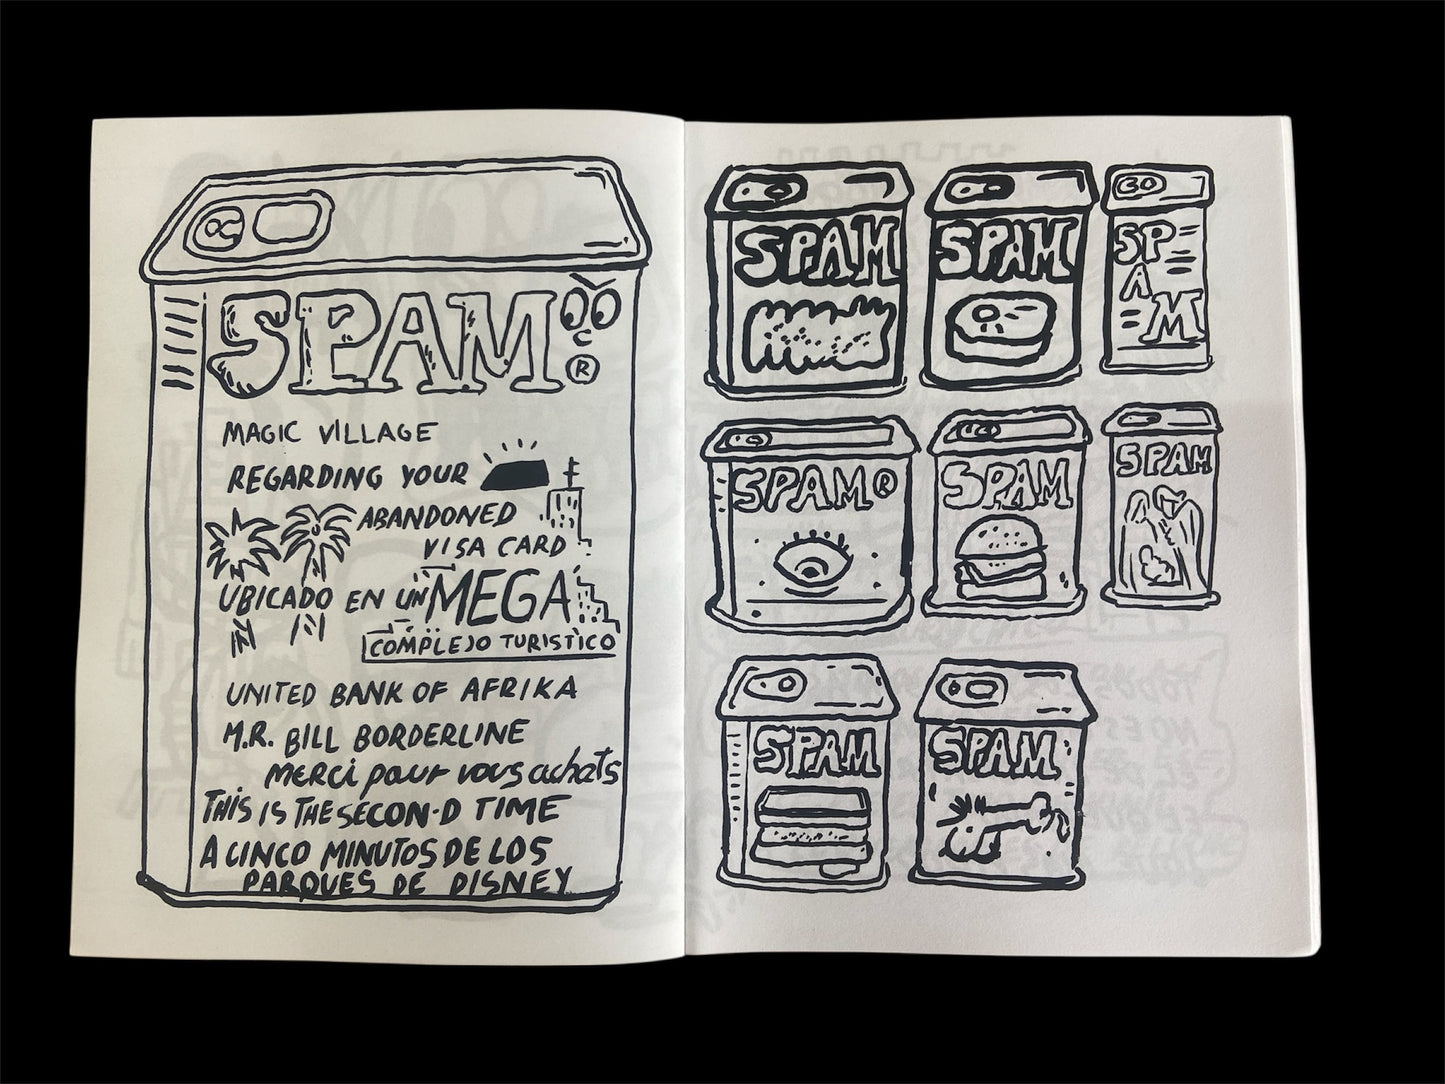 SPAM
®
MAGIC VILLAGE
REGARDING YOUR
ABANDONED
VISA CARD
UBICADO EN UN MEGA
COMPLEJO TURISTICO
UNITED BANK OF AFRIKA
M.R. BILL BORDERLINE
merci pour vous achats
THIS IS THE SECON·D TIME
A CINCO MINUTOS DE LOS
PARQUES DE DISNEY
SPAM
SPAM
SP
A
M
SPAM®
SPAM
SPAM
SPAM
SPAM